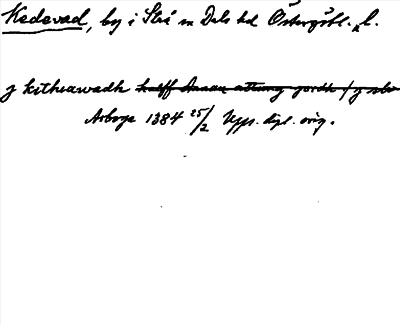 Kedevad, by i Slå sn Dals hd Östergötl. l.
j kitheawadh halff annan attung jordh / j slo
Arboga 1384 25/2 Upps. dipl. orig.